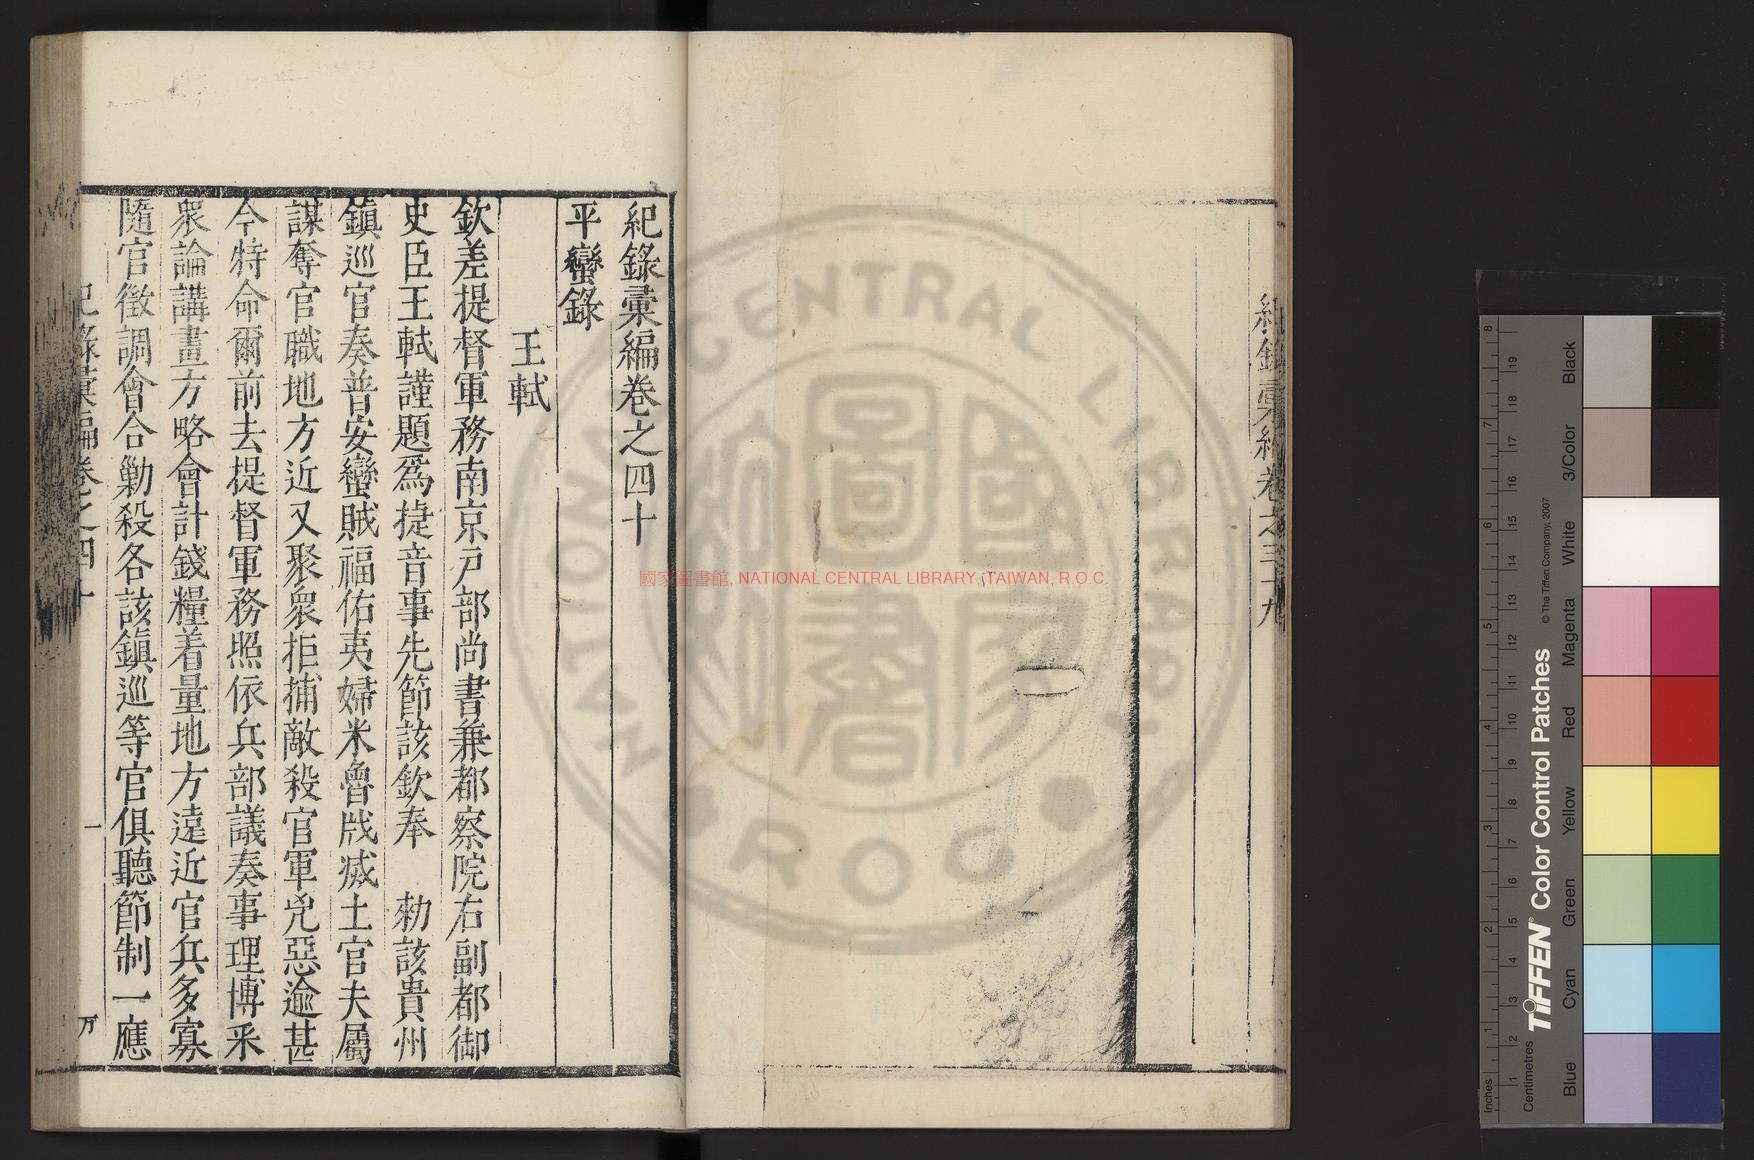 紀錄彚編卷之四十
平蠻錄
王軾
欽差提督軍務南京戸部尚書兼都察院右副都御
史臣王軾謹題爲捷音事先節該欽奉 勑該貴州
鎮巡官奏普安蠻賊福佑夷婦米魯戕滅土官夫屬
謀奪官職地方近又聚衆拒捕敵殺官軍兇惡逾甚
今特命爾前去提督軍務照依兵部議奏事理博采
衆論講畫方略會計錢糧着量地方遠近官兵多寡
隨官徵調會合勦殺各該鎮巡等官俱聽節制一應
紀錄彚編卷之四十
一
万
紀錄彚編卷之三十九
國家圖書館, NATIONAL CENTRAL LIBRARY, TAIWAN, R.O.C
NATIONAL CENTRAL LIBRARY
R O C
國家圖書館
TIFFEN® Color Control Patches
© The Tiffen Company, 2007
Inches
1 2 3 4 5 6 7 8
Centimetres
1 2 3 4 5 6 7 8 9 10 11 12 13 14 15 16 17 18 19
Blue
Cyan
Green
Yellow
Red
Magenta
White
3/Color
Black